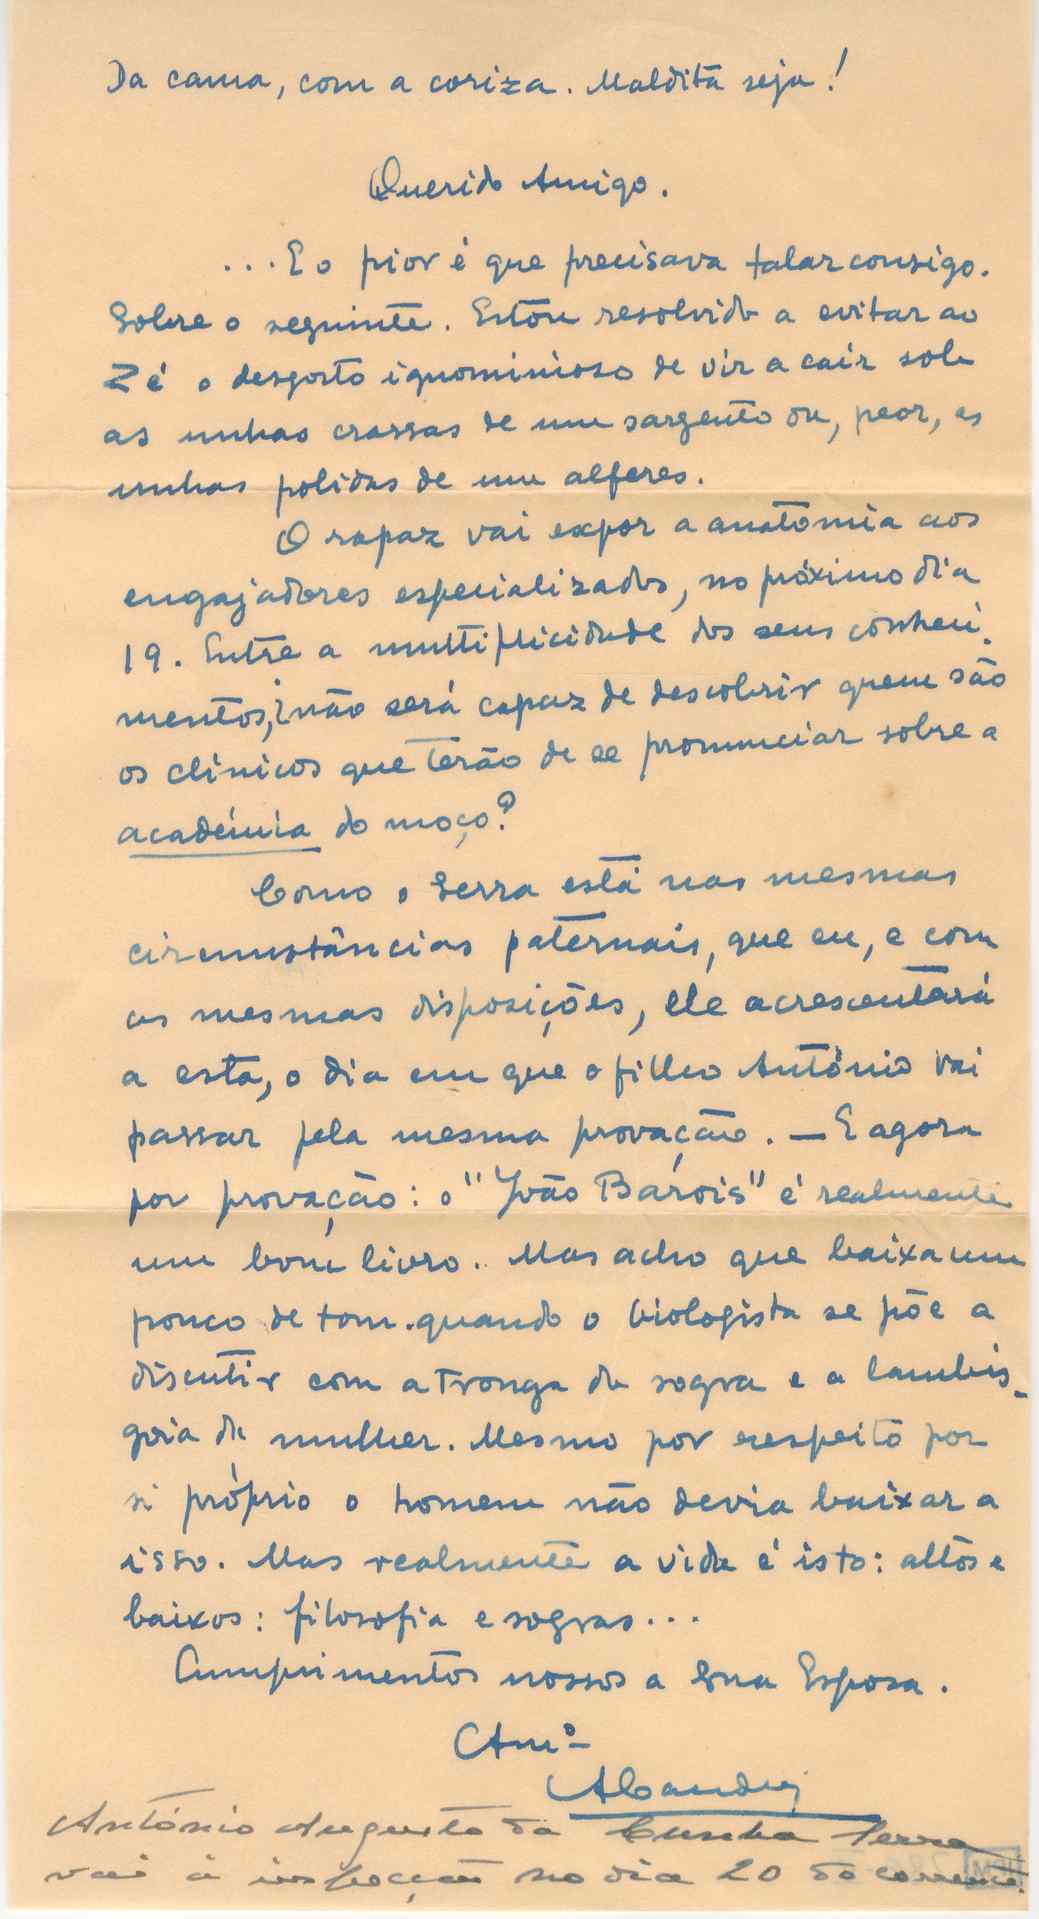 Da cama, com a coriza. Maldita seja!
Querido Amigo.
...E o pior é que precisava falar consigo.
Sobre o seguinte. Estou resolvido a evitar ao
Zé o desgosto ignominioso de vir a cair sob
as unhas crassas de um sargento ou, peor, as
unhas polidas de um alferes.
O rapaz vai expor a anatomia aos
engajadores especializados, no próximo dia
19. Entre a multiplicidade dos seus conheci-
mentos, não será capaz de descobrir quem são
os clínicos que terão de se pronunciar sobre a
académia do moço?
Como o Serra está nas mesmas
circunstâncias paternais, que eu, e com
as mesmas disposições, ele acrescentará
a esta, o dia em que o filho António vai
passar pela mesma provação. — E agora
por provação: o "João Barois" é realmente
um bom livro. Mas acho que baixa um
pouco de tom quando o biologista se põe a
discutir com a tronga da sogra e a lambis-
goia da mulher. Mesmo por respeito por
si próprio o homem não devia baixar a
isso. Mas realmente a vida é isto: altos e
baixos: filosofia e sogras...
Cumprimentos nossos a Sua Esposa.
Amº
António Augusto da Cunha Serra
vai à inspecção no dia 20 do corrente.